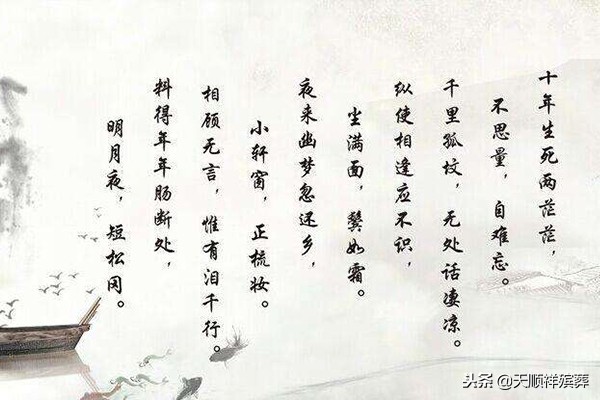 十年生死两茫茫，
不思量，自难忘。
千里孤坟，无处话凄凉。
纵使相逢应不识，
尘满面，鬓如霜。
夜来幽梦忽还乡，
小轩窗，正梳妆。
相顾无言，惟有泪千行。
料得年年肠断处，
明月夜，短松冈。
头条 @天顺祥殡葬